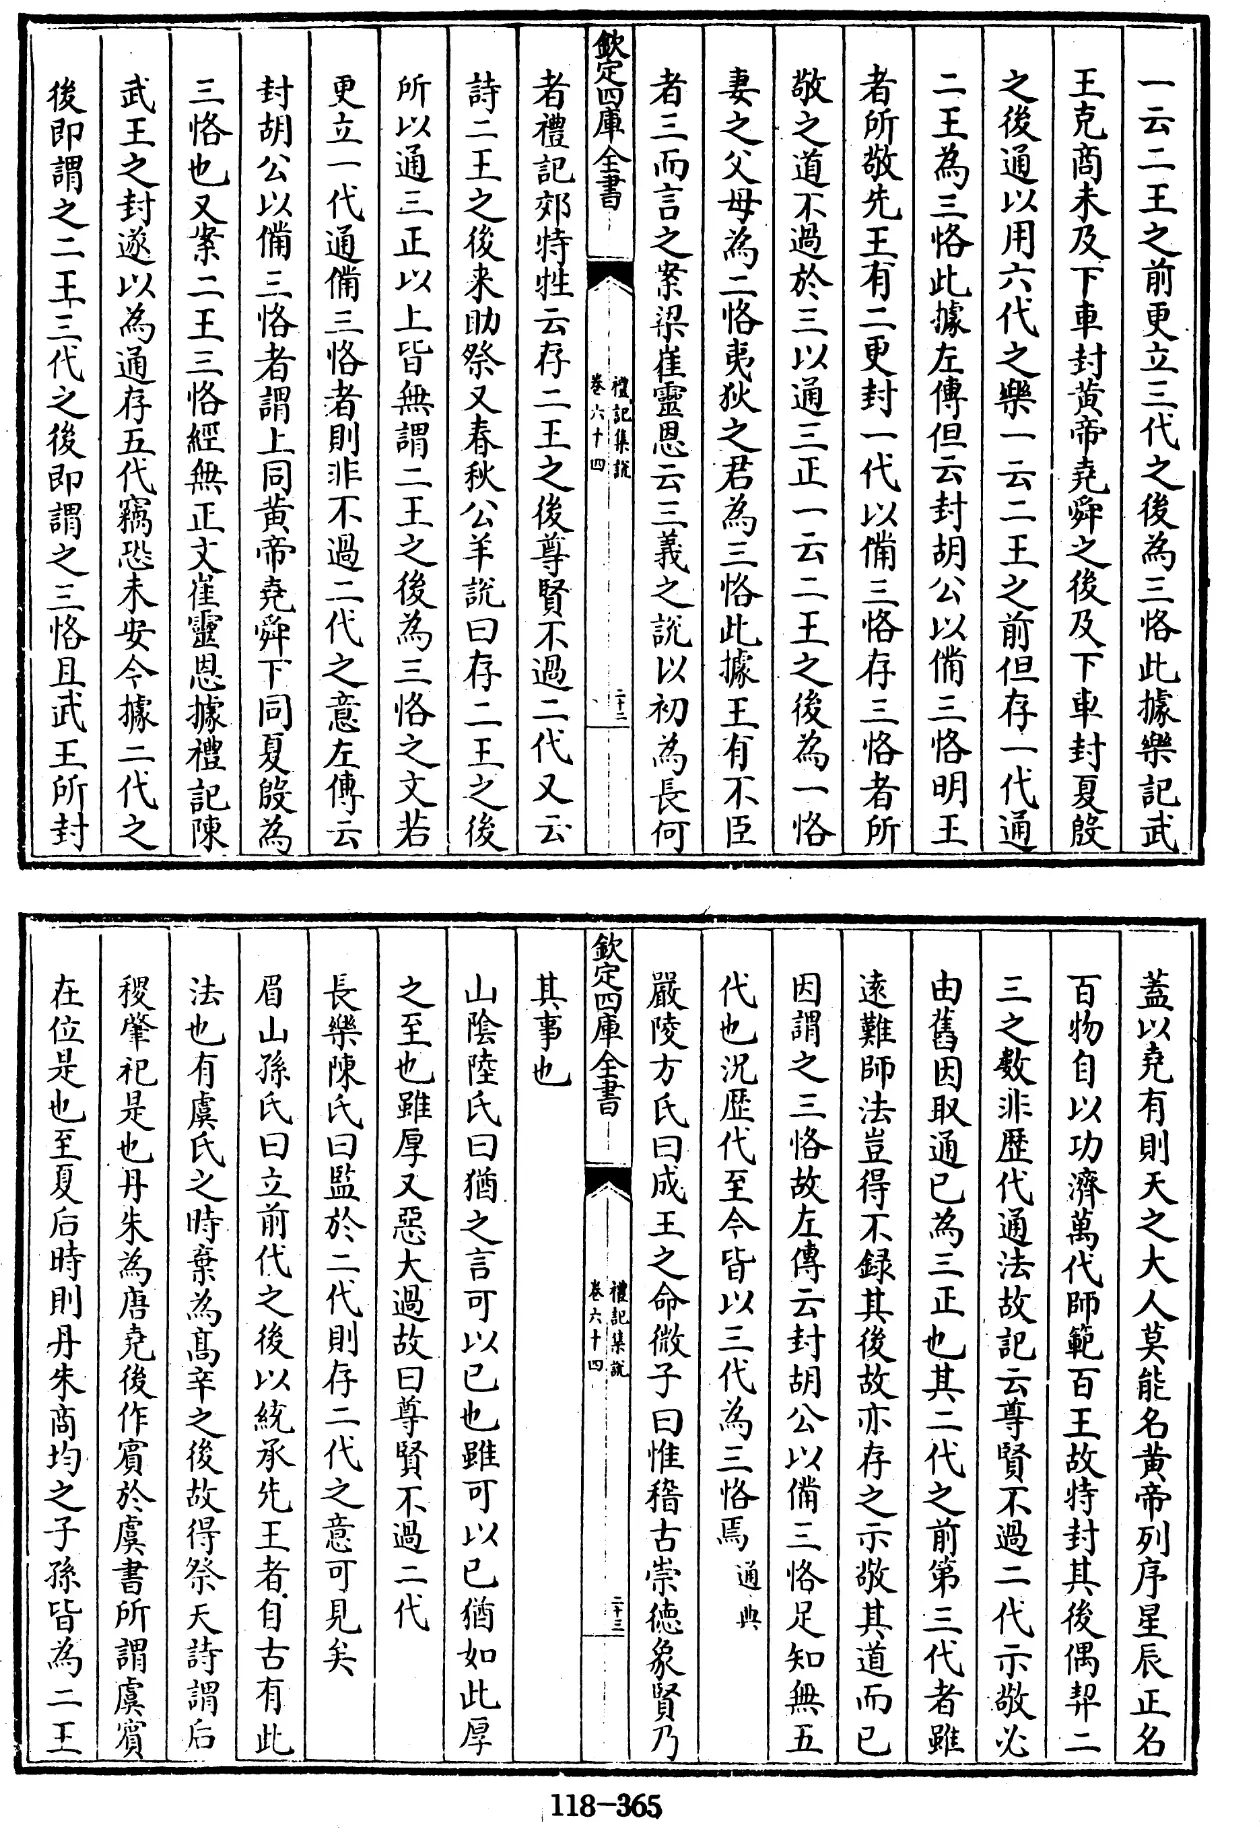 一云二王之前更立三代之後為三恪此據樂記武
王克商未及下車封黃帝堯舜之後及下車封夏殷
之後通以用六代之樂一云二王之前但存一代通
二王為三恪此據左傳但云封胡公以備三恪明王
者所敬先王有二更封一代以備三恪存三恪者所
敬之道不過於三以通三正一云二王之後為一恪
妻之父母為二恪夷狄之君為三恪此據王有不臣
者三而言之案梁崔靈恩云三義之說以初為長何
欽定四庫全書
禮記集說
卷六十四
二十二
者禮記郊特牲云存二王之後尊賢不過二代又云
詩二王之後来助祭又春秋公羊說曰存二王之後
所以通三正以上皆無謂二王之後為三恪之文若
更立一代通備三恪者則非不過二代之意左傳云
封胡公以備三恪者謂上同黃帝堯舜下同夏殷為
三恪也又案二王三恪經無正文崔靈恩據禮記陳
武王之封遂以為通存五代竊恐未安今據二代之
後即謂之二王三代之後即謂之三恪且武王所封
蓋以堯有則天之大人莫能名黃帝列序星辰正名
百物自以功濟萬代師範百王故特封其後偶契二
三之數非歷代通法故記云尊賢不過二代示敬必
由舊因取通已為三正也其二代之前第三代者雖
逺難師法豈得不録其後故亦存之示敬其道而已
因謂之三恪故左傳云封胡公以備三恪足知無五
代也況歷代至今皆以三代為三恪焉 通典
嚴陵方氏曰成王之命微子曰惟稽古崇德象賢乃
欽定四庫全書
禮記集說
卷六十四
二十三
其事也
山陰陸氏曰猶之言可以已也雖可以已猶如此厚
之至也雖厚又惡大過故曰尊賢不過二代
長樂陳氏曰監於二代則存二代之意可見矣
眉山孫氏曰立前代之後以統承先王者自古有此
法也有虞氏之時棄為髙辛之後故得祭天詩謂后
稷肇祀是也丹朱為唐堯後作賓於虞書所謂虞賓
在位是也至夏后時則丹朱商均之子孫皆為二王
118-365